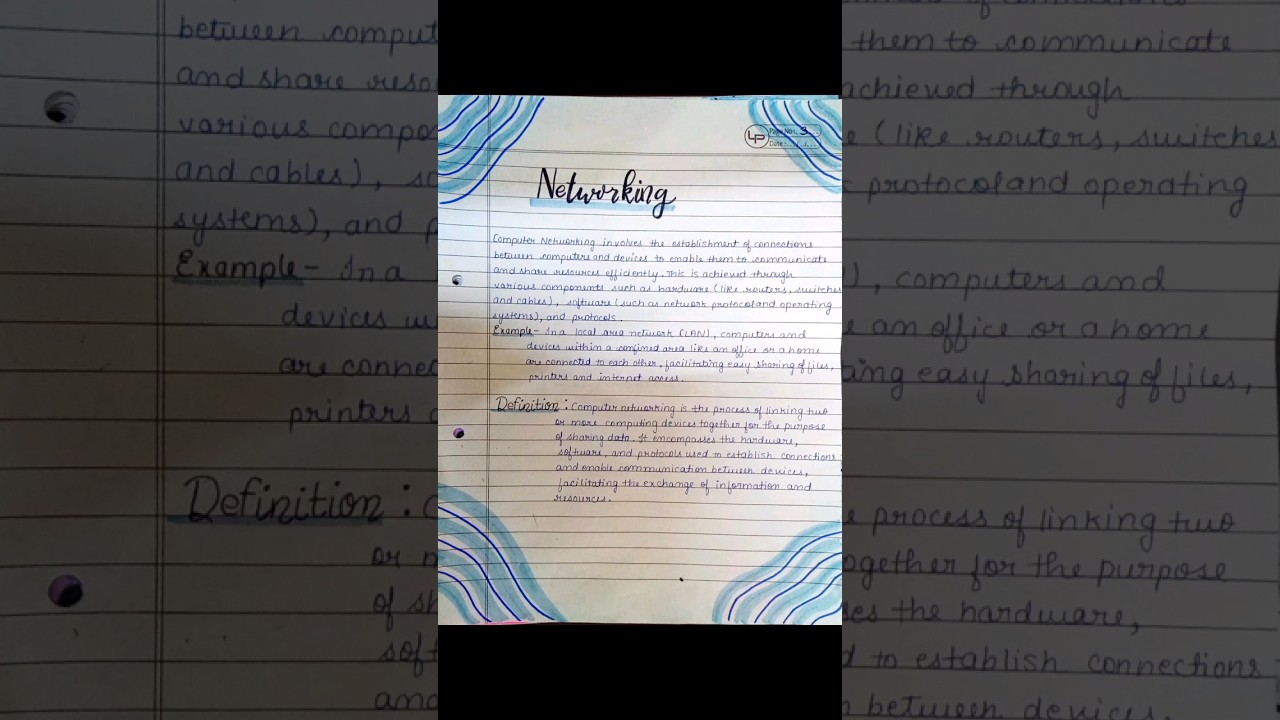 LP Page No: 3
Date:
Networking
Computer Networking involves the establishment of connections
between computers and devices to enable them to communicate
and share resources efficiently. This is achieved through
various components such as hardware (like routers, switches
and cables), software (such as network protocol and operating
systems), and protocols.
Example - In a local area network (LAN), computers and
devices within a confined area like an office or a home
are connected to each other, facilitating easy sharing of files,
printers and internet access.
Definition : Computer networking is the process of linking two
or more computing devices together for the purpose
of sharing data. It encompasses the hardware,
software, and protocols used to establish connections
and enable communication between devices,
facilitating the exchange of information and
resources.